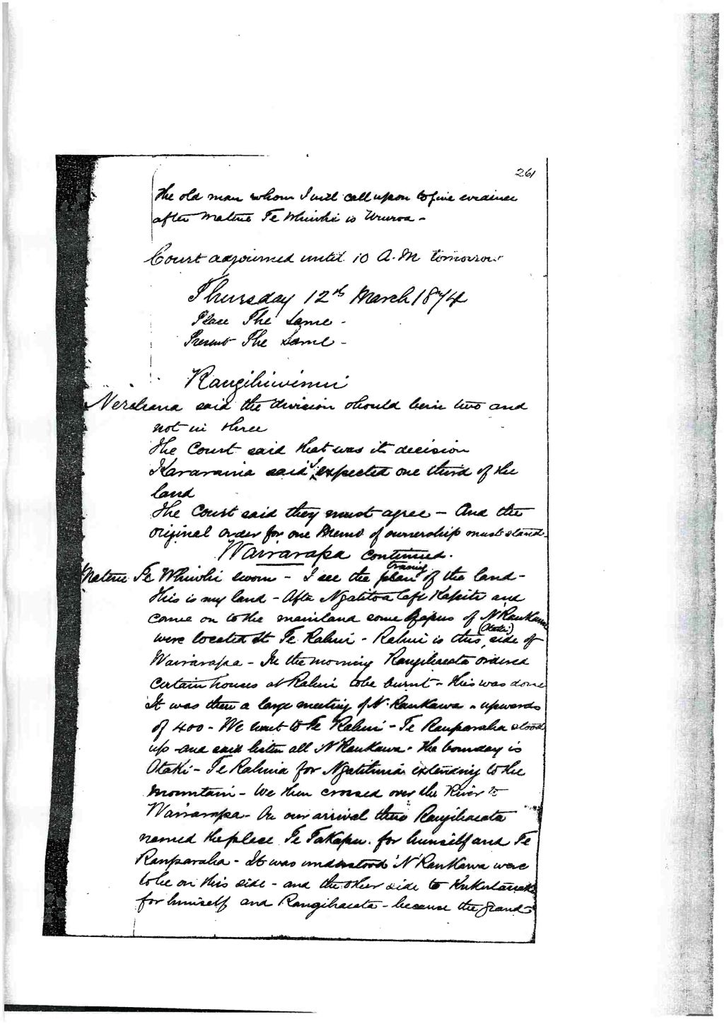 261
The old man whom I will call upon to give evidence
after Matene Te Whiwhi is Ururoa -
Court adjourned until 10 A.M tomorrow
Thursday 12th March 1874
Place The Same -
Present The Same -
Rangihiwinui
said the division should be in two and
not in three
The Court said that was its decision
said I expected one third of the
land
The Court said they must agree - And the
original order for one Memo of ownership must stand -
Wairarapa continued.
Matene Te Whiwhi sworn - I see the plan tracing of the land -
This is my land - After Ngatitoa left Kapiti and
came on to the mainland some Hapus of N Raukawa
were located at Te Rahui - Rahui is this (Otaki) side of
Wairarapa - In the morning Rangihaeata ordered
certain houses at Rahui to be burnt - this was done
It was then a large meeting of N. Raukawa - upwards
of 400 - We went to Te Rahui - Te Rauparaha stood
up and said listen all N Raukawa - the boundary is
Otaki - Te Rahuia for extending to the
mountain - We then crossed over the River to
Wairarapa - On our arrival there Rangihaeata
named the place Te Takapu. for himself and Te
Rauparaha - It was understood N Raukawa were
to be on this side - and the other side to
for himself and Rangihaeata - because the grand